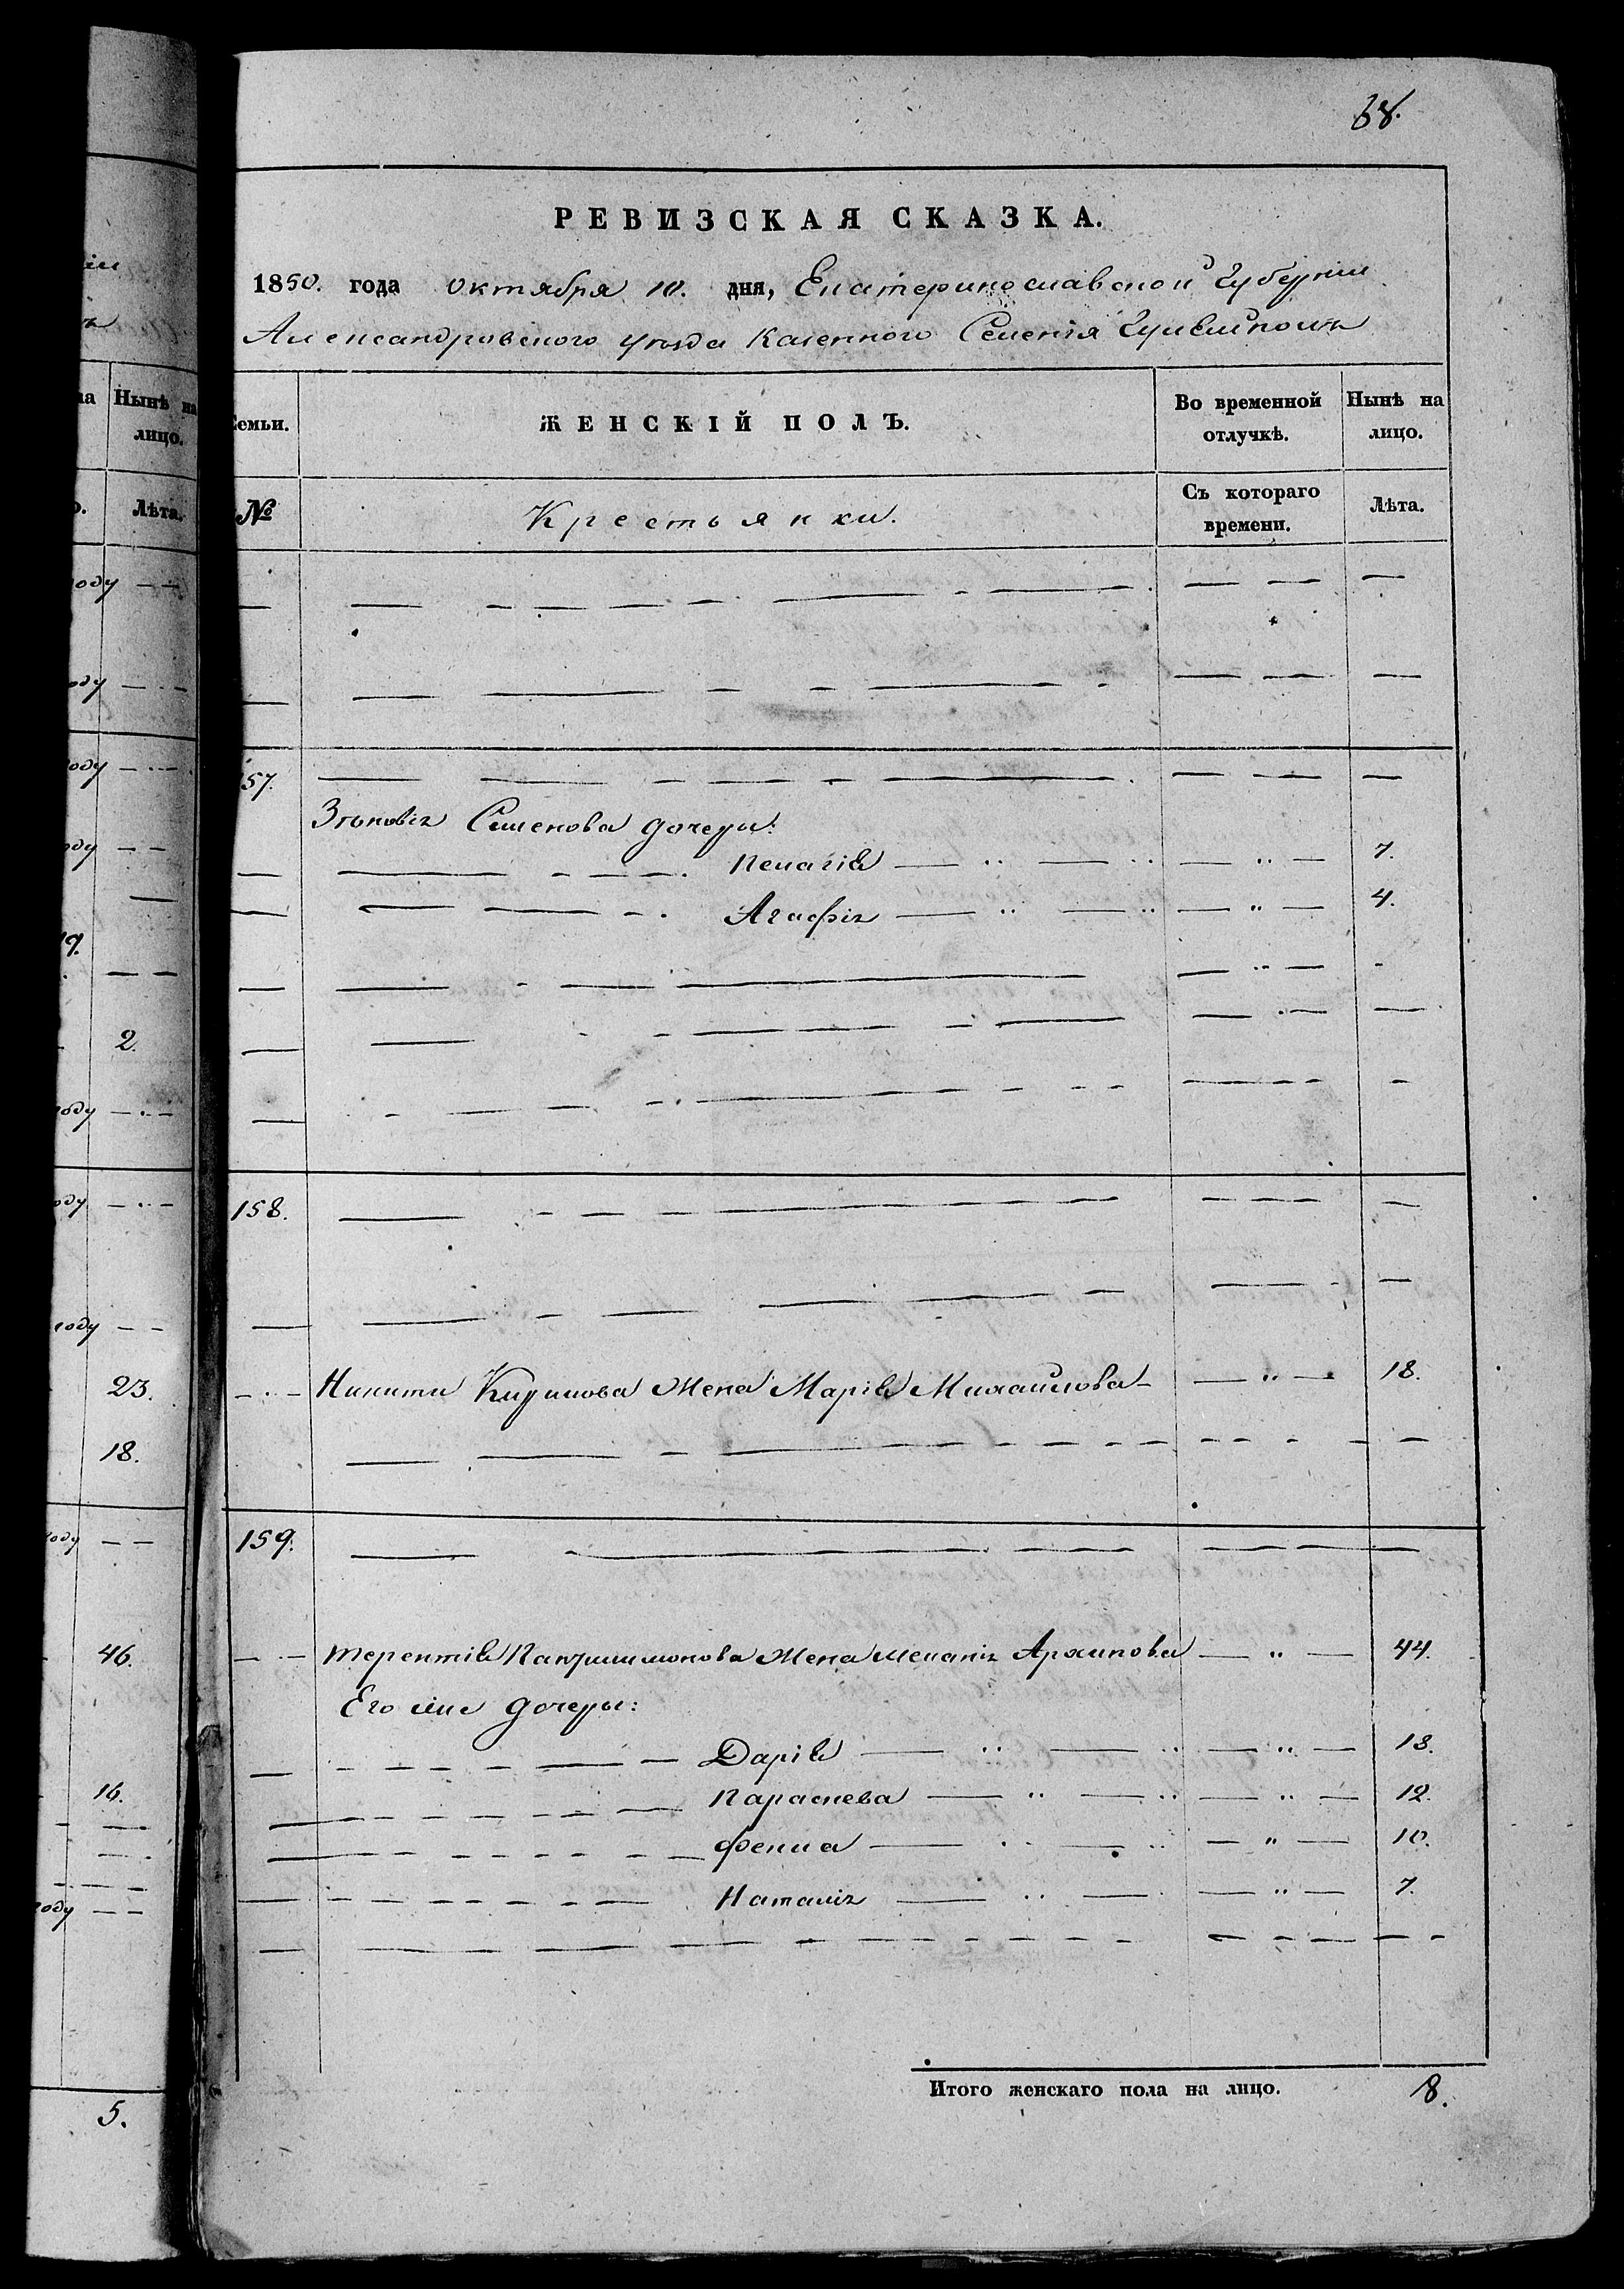 68.
РЕВИЗСКАЯ СКАЗКА.
1850. года октября 10. дня, Екатеринославской Губерніи
Александровского уѣзда Казенного Селенія Гуляйполя
на Нынѣ на лицо.
Семьи. ЖЕНСКІЙ ПОЛЪ. Во временной отлучкѣ. Нынѣ на лицо.
Лѣта.
№ Крестьянки. Съ котораго времени. Лѣта.
году — —
— — — — — —
году — —
— — — — — —
157. — — — — — —
году — —
Зѣновія Семенова дочери:
году — —
— — — Пелагія — " — " — " — 7.
— — — Агафія — " — " — " — 4.
19.
— — — — " — -
2.
— — — — — —
году — —
— — — — — —
году — —
158. — — — — — —
году — —
— — — — — —
23.
— Никити Кирилова Жена Марія Михайлова — " — 18.
18.
— — — — — —
году — —
159. — — — — — —
46.
— Терентія Пантилимонова Жена Меланія Архипова — " — 44.
Его же дочери:
— — — Дарія — " — " — " — 13.
16.
— — — Параскева — " — " — " — 12.
— — — Фекла — " — " — " — 10.
— — — Наталія — " — " — " — 7.
году — —
— — — — — —
Итого женскаго пола на лицо. 8.
5.